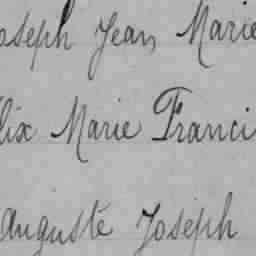 oseph Jean Marie
lix Marie Franci
Auguste Joseph